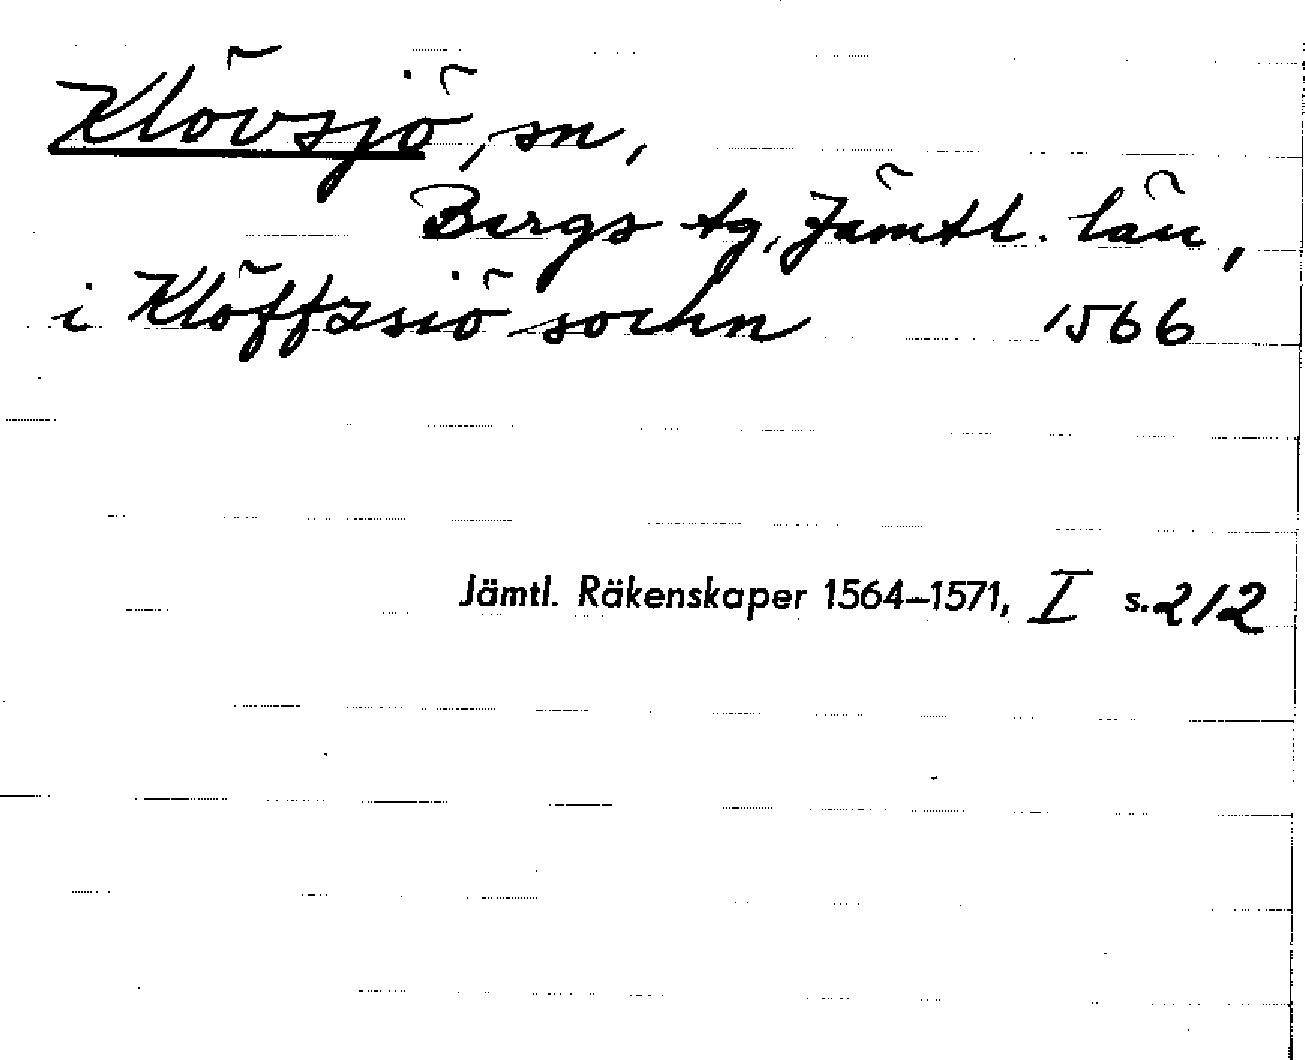 Klövsjö, sn,
Bergs tg, Jämtl. län,
i Klöffzsiö sochn 1566
Jämtl. Räkenskaper 1564–1571, I s. 212